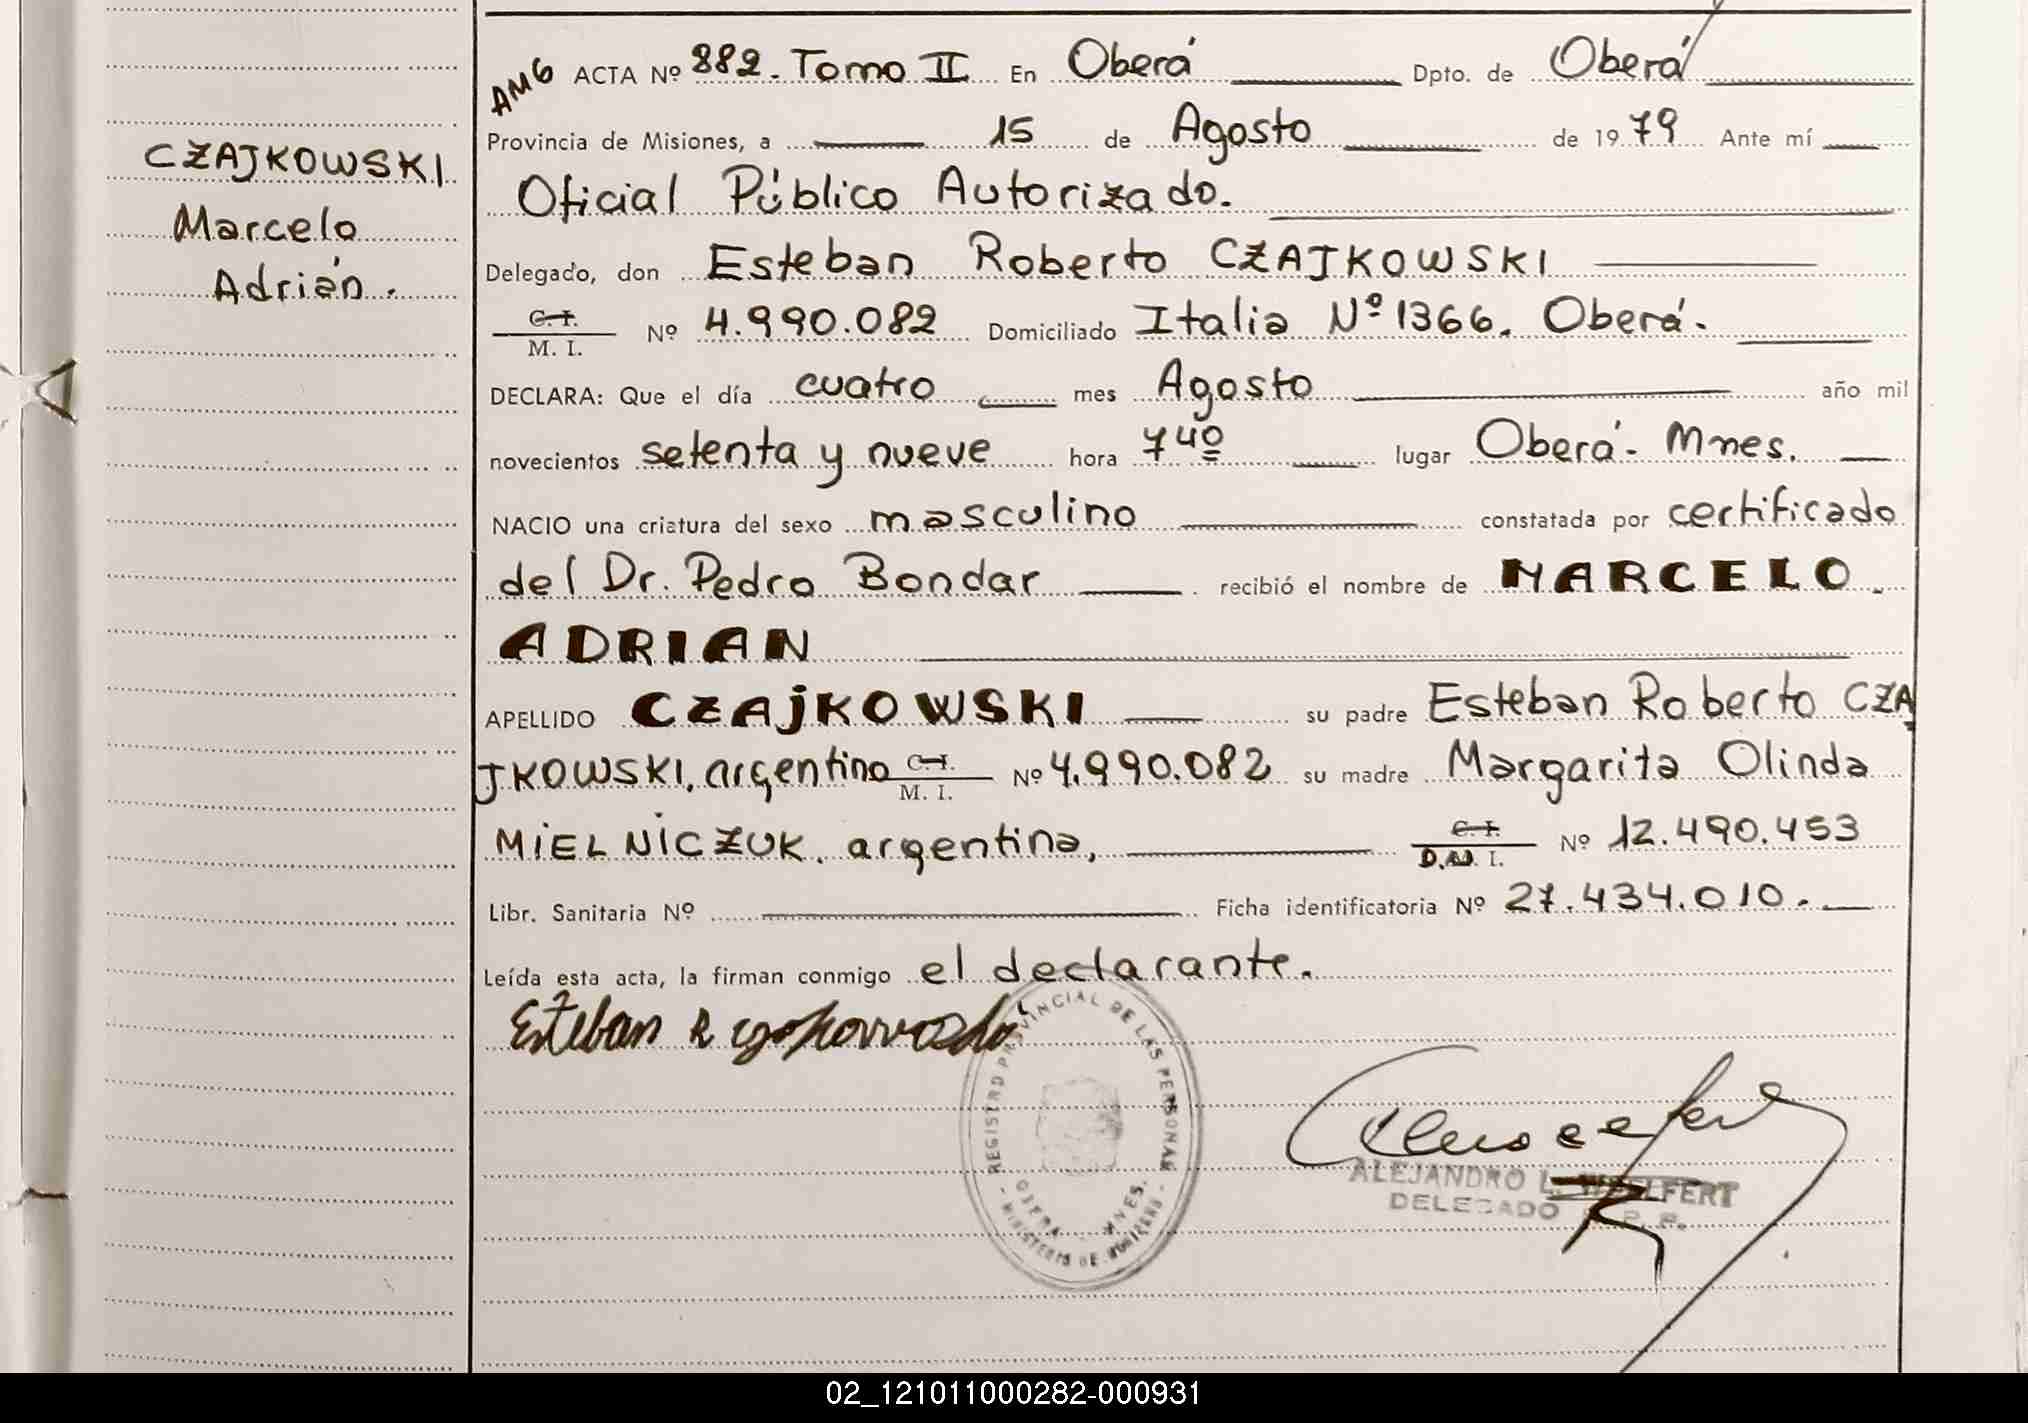 CZAJKOWSKI
Marcelo
Adrián.
AMG ACTA Nº 882. Tomo II En Oberá Dpto. de Oberá
Provincia de Misiones, a 15 de Agosto de 1979 Ante mí
Oficial Público Autorizado.
Delegado, don Esteban Roberto CZAJKOWSKI
C. I.
M. I. Nº 4.990.082 Domiciliado Italia Nº 1366. Oberá.
DECLARA: Que el día cuatro mes Agosto año mil
novecientos setenta y nueve hora 7 40 lugar Oberá- Mnes.
NACIO una criatura del sexo masculino constatada por certificado
del Dr. Pedro Bondar recibió el nombre de MARCELO
ADRIAN
APELLIDO CZAJKOWSKI su padre Esteban Roberto CZA
JKOWSKI, argentino C. I. M. I. Nº 4.990.082 su madre Margarita Olinda
MIELNICZUK. argentina, C. I. D.N. I. Nº 12.490.453
Libr. Sanitaria Nº Ficha identificatoria Nº 27.434.010.
Leída esta acta, la firman conmigo el declarante.
Esteban R
REGISTRO PROVINCIAL DE LAS PERSONAS
OBERA - MNES.
- MINISTERIO DE GOBIERNO -
ALEJANDRO L. WOELFERT
DELEGADO R. P. P.
02_121011000282-000931